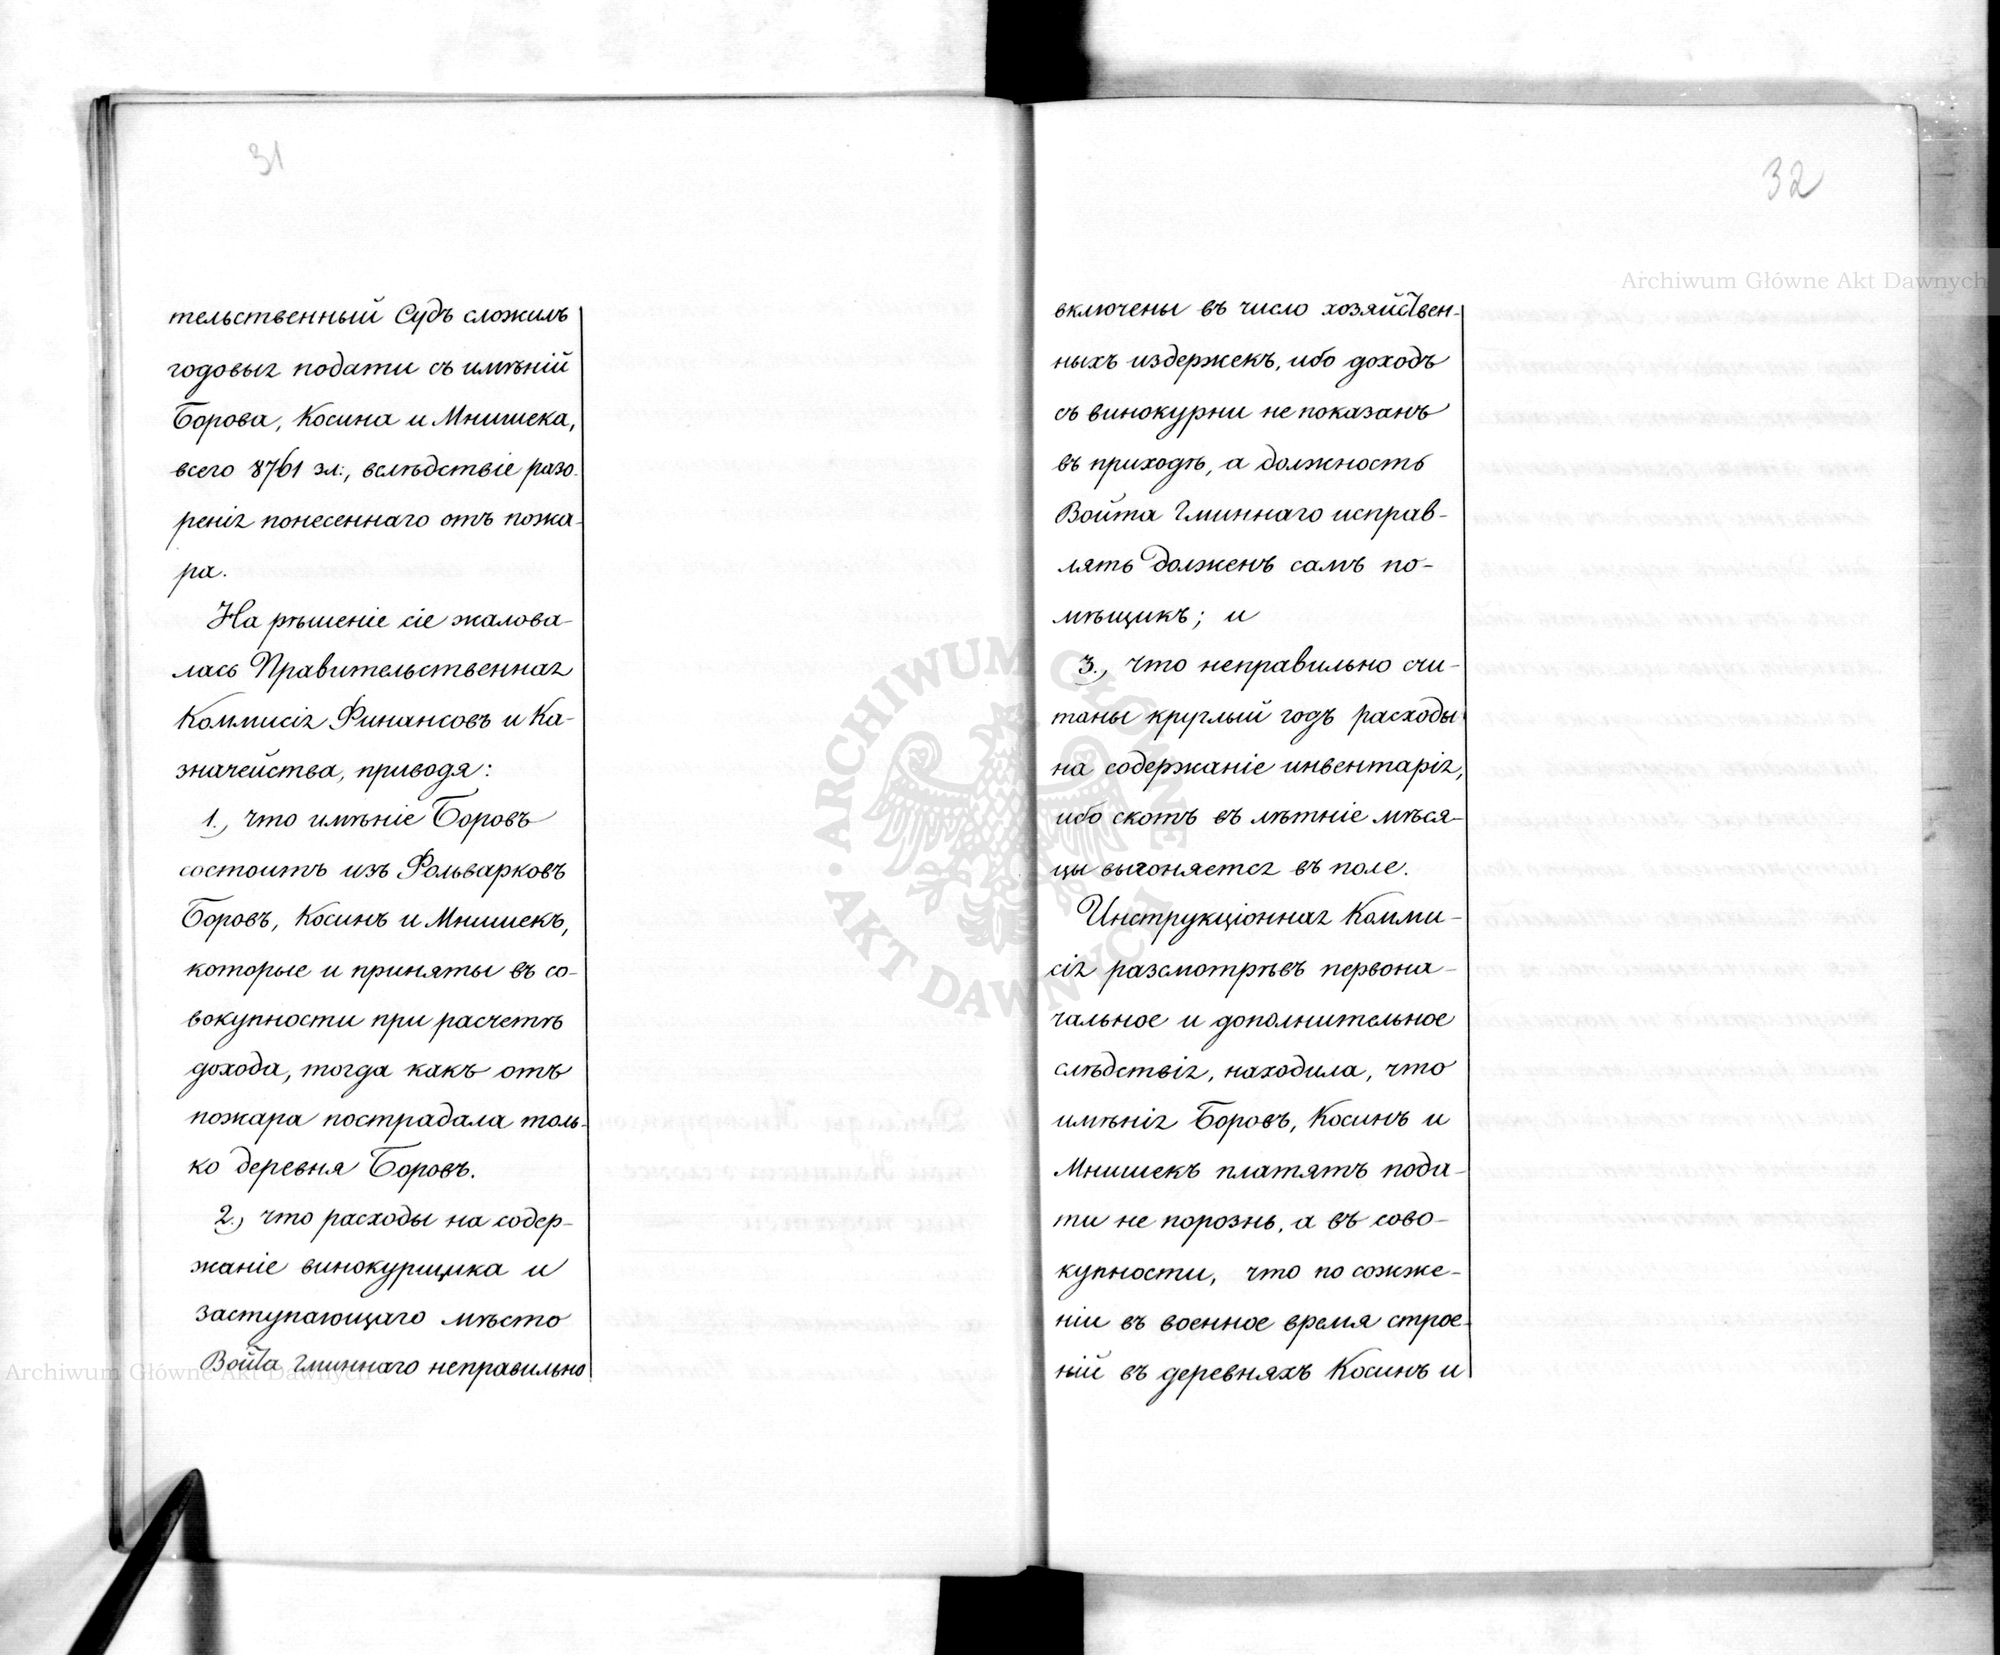 31
тельственный Судъ сложилъ
годовыя подати съ имѣній
Борова, Косина и Мнишека,
всего 8761 зл:, вслѣдствіе разо-
ренія понесеннаго отъ пожа-
ра.
На рѣшеніе сіе жалова-
лась Правительственная
Коммисія Финансовъ и Ка-
значейства, приводя:
1., что имѣніе Боровъ
состоитъ изъ Фольварковъ
Боровъ, Косинъ и Мнишекъ,
которые и приняты въ со-
вокупности при расчетѣ
дохода, тогда какъ отъ
пожара пострадала толь-
ко деревня Боровъ.
2., что расходы на содер-
жаніе винокурщика и
заступающаго мѣсто
Войта Гминнаго неправильно
32
включены въ число хозяйствен-
ныхъ издержекъ, ибо доходъ
съ винокурни не показанъ
въ приходѣ, а должность
Войта Гминнаго исправ-
лять долженъ самъ по-
мѣщикъ; и
3., что неправильно счи-
таны круглый годъ расходы
на содержаніе инвентарія,
ибо скотъ въ лѣтніе мѣся-
цы выгоняется въ поле.
Инструкціонная Комми-
сія разсмотрѣвъ первона-
чальное и дополнительное
слѣдствія, находила, что
имѣнія Боровъ, Косинъ и
Мнишекъ платятъ пода-
ти не порознь, а въ сово-
купности, что по сожже-
ніи въ военное время строе-
ній въ деревняхъ Косинъ и
Archiwum Główne Akt Dawnych
Archiwum Główne Akt Dawnych
ARCHIWUM GŁÓWNE AKT DAWNYCH